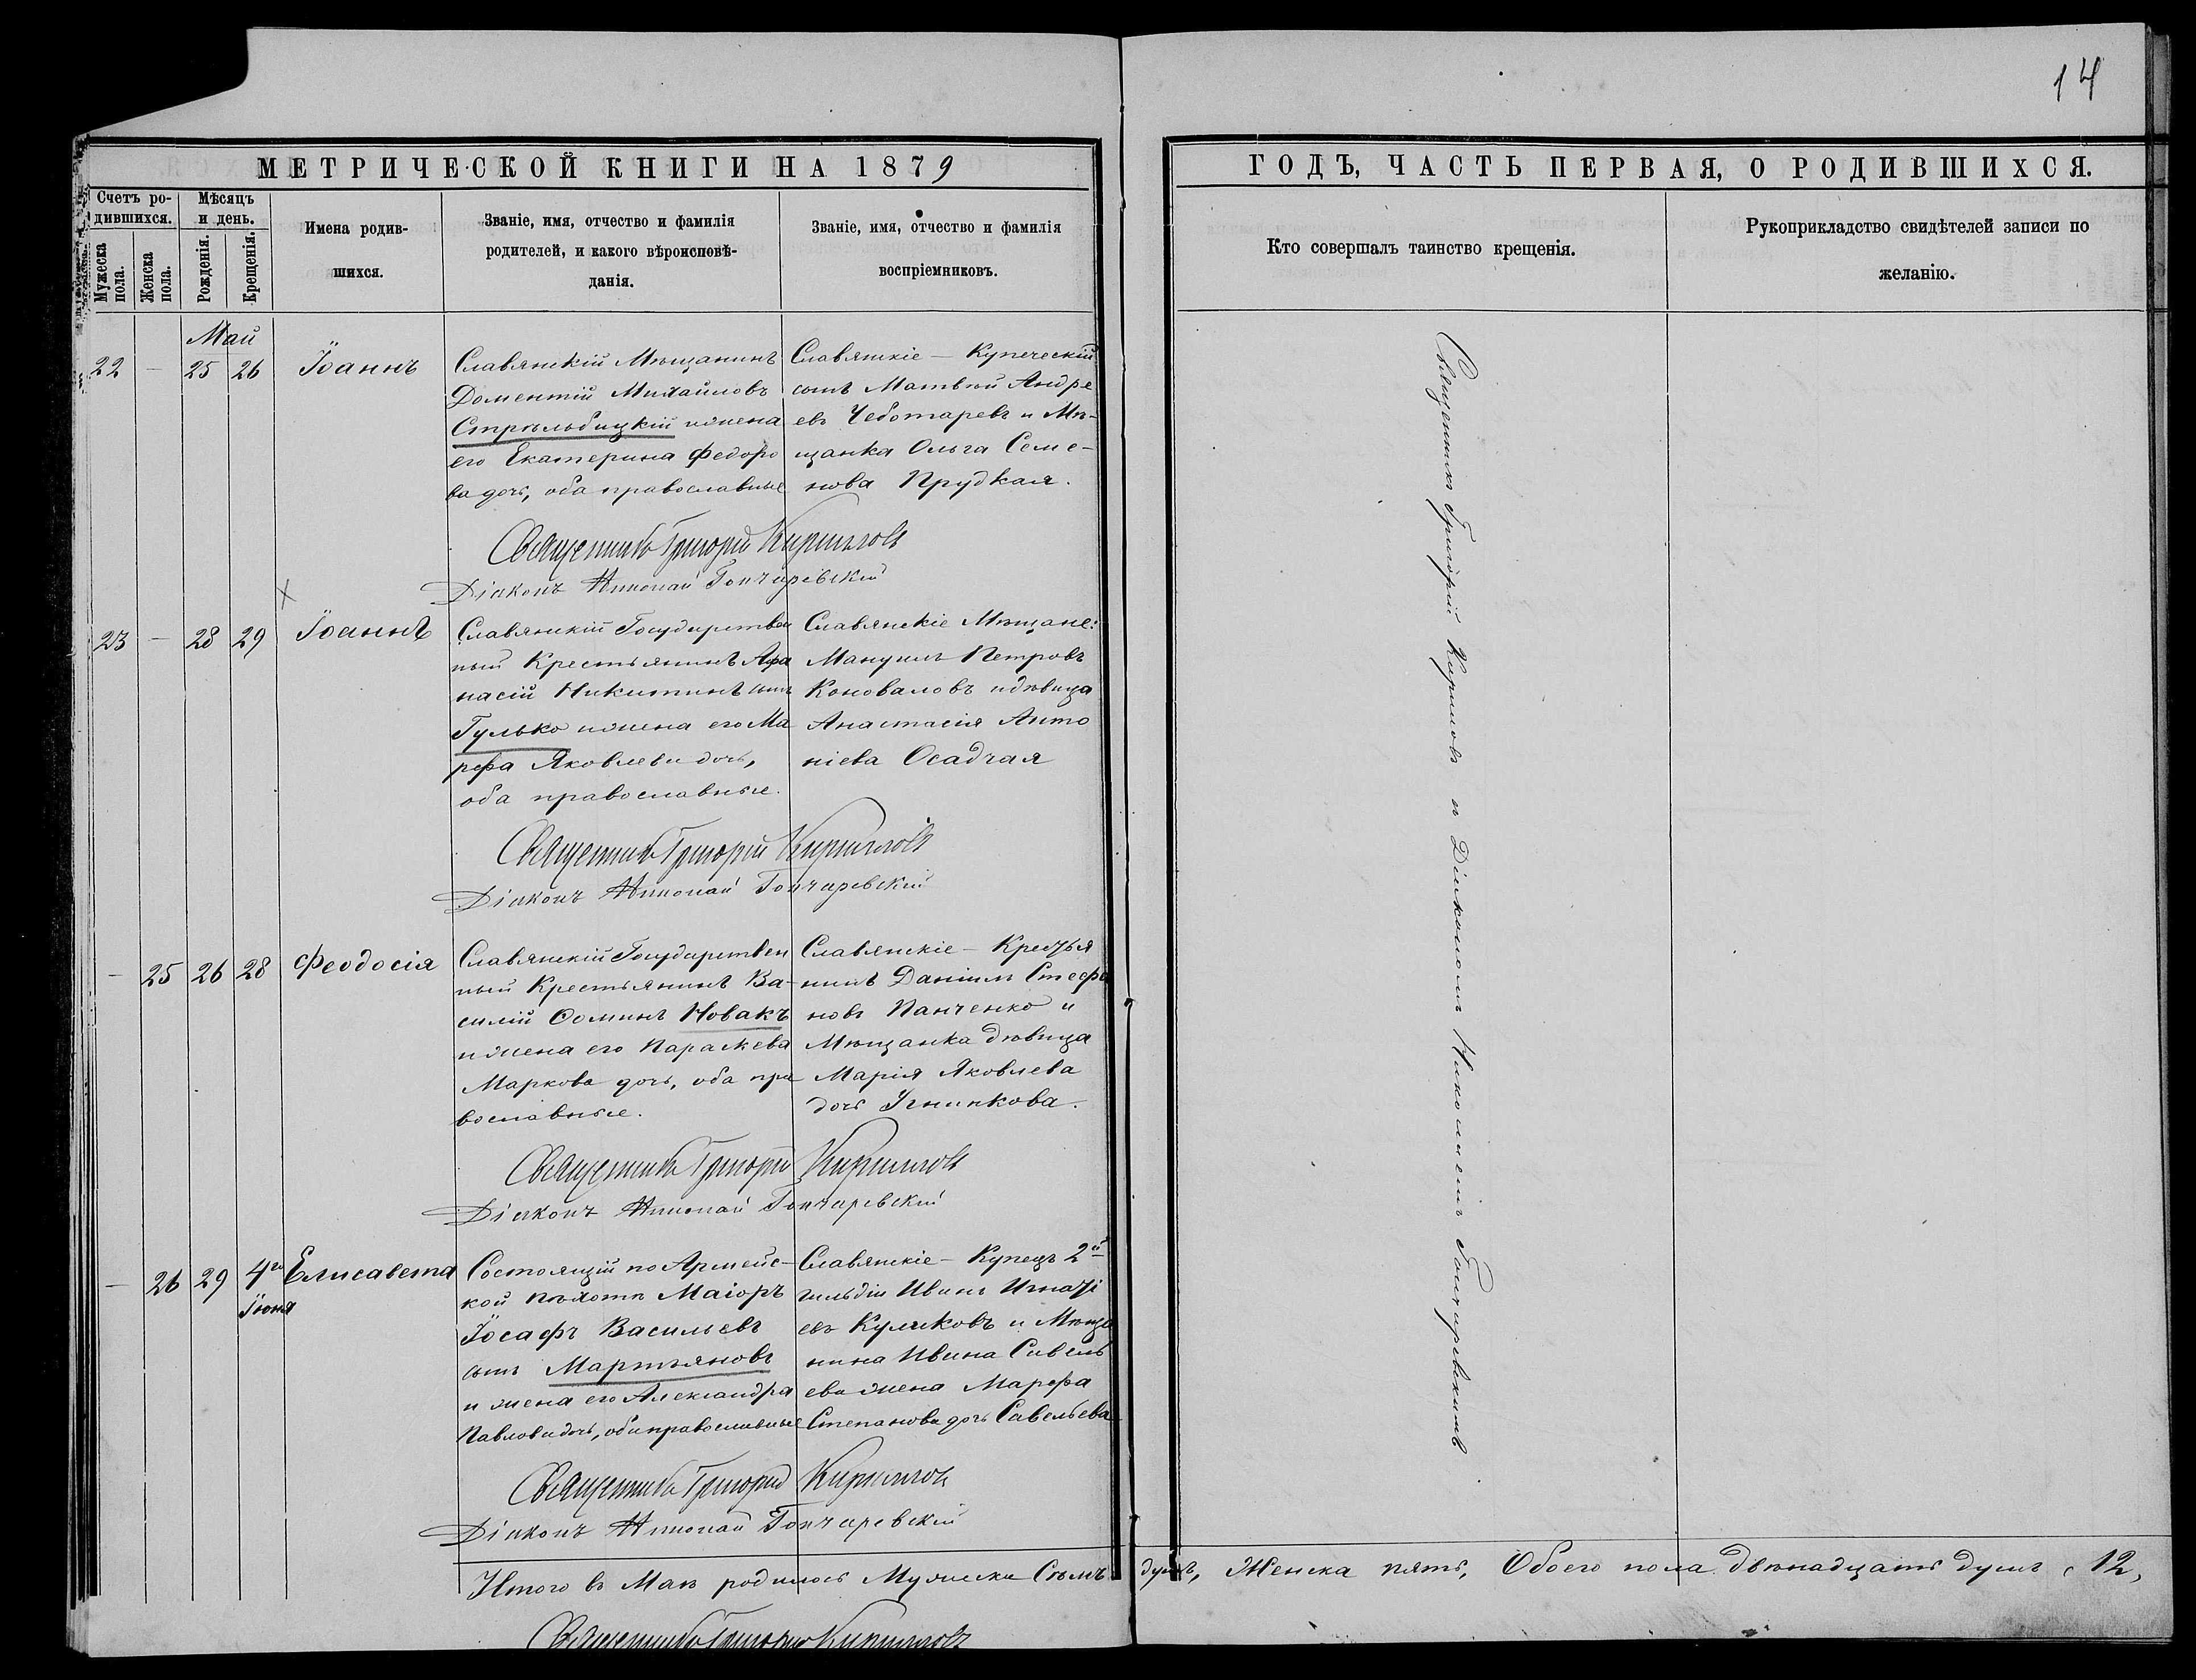 14
МЕТРИЧЕСКОЙ КНИГИ НА 1879
ГОДЪ, ЧАСТЬ ПЕРВАЯ, О РОДИВШИХСЯ.
Счетъ ро-
дившихся.
Мужеска
пола.
Женска
пола.
Мѣсяцъ
и день.
Рожденія.
Крещенія.
Имена родив-
шихся.
Званіе, имя, отчество и фамилія
родителей, и какого вѣроисповѣ-
данія.
Званіе, имя, отчество и фамилія
воспріемниковъ.
Кто совершалъ таинство крещенія.
Рукоприкладство свидѣтелей записи по
желанію.
Май
22 — 25 26 Іоаннъ
Славянскій Мѣщанинъ
Доментій Михайловъ
Стрѣльбицкій и жена
его Екатерина Федоро
ва дочь, оба православные
Славянскіе — Купеческій
сынъ Матвѣй Андре
евъ Чеботаревъ и Мѣ-
щанка Ольга Семе-
нова Прудкая.
Священникъ Григорій Кирилловъ
Діаконъ Николай Гончаревскій
23 — 28 29 Іоаннъ
Славянскій Государствен
ный Крестьянинъ Афа
насій Никитинъ сынъ
Гулько и жена его Ма
рфа Яковлева дочь,
оба православные.
Славянскіе Мѣщане:
Мануилъ Петровъ
Коноваловъ и дѣвица
Анастасія Анто
ніева Осадчая
Священникъ Григорій Кирилловъ
Діаконъ Николай Гончаревскій
— 25 26 28 Феодосія
Славянскій Государствен
ный Крестьянинъ Ва-
силій Ѳоминъ Новакъ
и жена его Параскева
Маркова дочь, оба пра
вославные.
Славянскіе — Крестья
нинъ Даніилъ Стефа
новъ Панченко и
Мѣщанка дѣвица
Марія Яковлева
дочь
Священникъ Григорій Кирилловъ
Діаконъ Николай Гончаревскій
— 26 29 4го Елисавета
Іюня
Состоящій по Армейс-
кой пѣхотѣ Маіоръ
Іосафъ Васильевъ
сынъ Мартьяновъ
и жена его Александра
Павлова дочь, оба православные
Славянскіе — Купецъ 2й
гильдіи Иванъ Игнаті
евъ Куликовъ и Мѣща
нина Ивана Савель
ева жена Марфа
Степанова дочь Савельева
Священникъ Григорій Кирилловъ
Діаконъ Николай Гончаревскій
Священникъ Григорій Кирилловъ и Діакономъ Николаемъ Гончаревскимъ
Итого въ Маѣ родилось Мужеска Семь душъ, Женска пять, Обоего пола двѣнадцать душъ (12,
Священникъ Григорій Кирилловъ